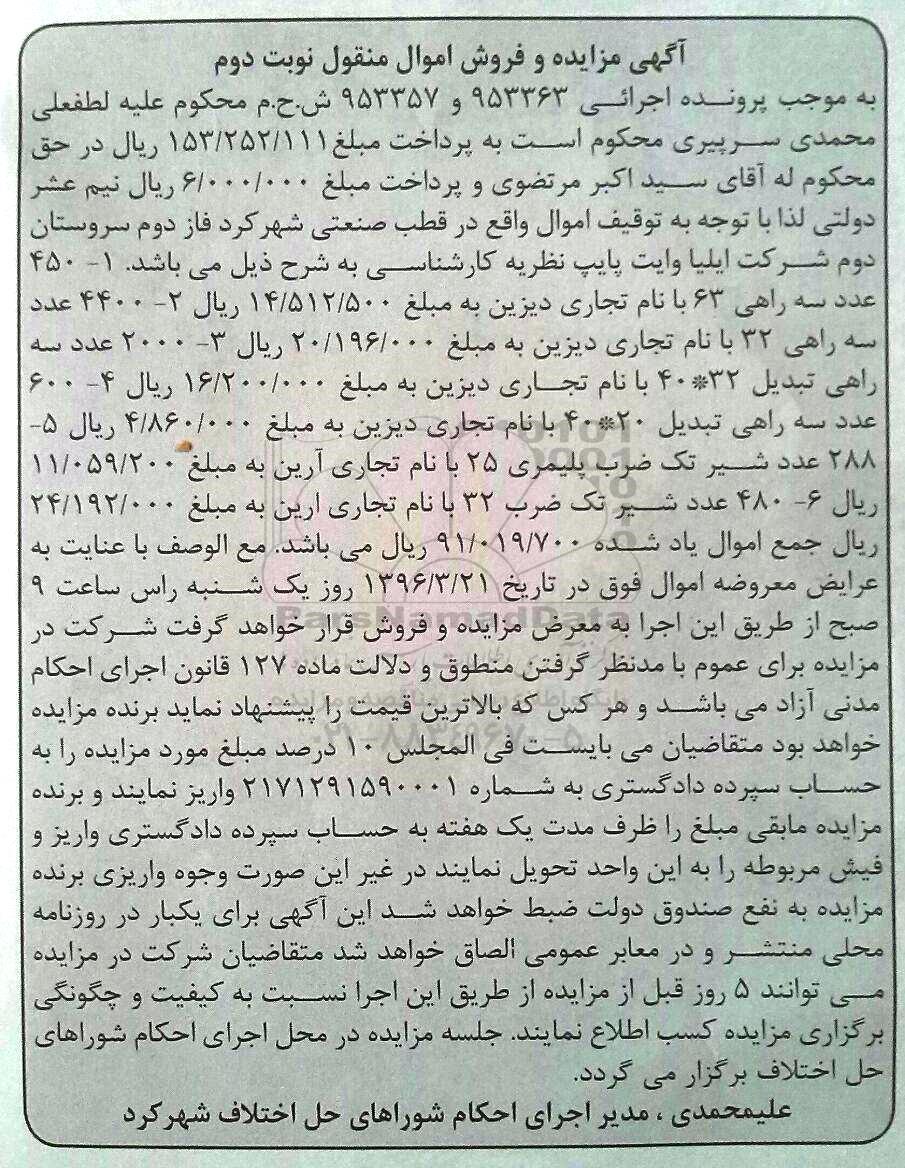 آگهی مزایده و فروش اموال منقول نوبت دوم
به موجب پرونده اجرائی ۹۵۳۳۶۳ و ۹۵۳۳۵۷ ش.ح.م محکوم علیه لطفعلی
محمدی سرپیری محکوم است به پرداخت مبلغ ۱۵۳/۲۵۲/۱۱۱ ریال در حق
محکوم له آقای سید اکبر مرتضوی و پرداخت مبلغ ۶/۰۰۰/۰۰۰ ریال نیم عشر
دولتی لذا با توجه به توقیف اموال واقع در قطب صنعتی شهرکرد فاز دوم سروستان
دوم شرکت ایلیا وایت پایپ نظریه کارشناسی به شرح ذیل می باشد. ۱- ۴۵۰
عدد سه راهی ۶۳ با نام تجاری دیزین به مبلغ ۱۴/۵۱۲/۵۰۰ ریال ۲- ۴۴۰۰ عدد
سه راهی ۳۲ با نام تجاری دیزین به مبلغ ۲۰/۱۹۶/۰۰۰ ریال ۳- ۲۰۰۰ عدد سه
راهی تبدیل ۳۲*۴۰ با نام تجاری دیزین به مبلغ ۱۶/۲۰۰/۰۰۰ ریال ۴- ۶۰۰
عدد سه راهی تبدیل ۲۰*۴۰ با نام تجاری دیزین به مبلغ ۴/۸۶۰/۰۰۰ ریال ۵-
۲۸۸ عدد شیر تک ضرب پلیمری ۲۵ با نام تجاری آرین به مبلغ ۱۱/۰۵۹/۲۰۰
ریال ۶- ۴۸۰ عدد شیر تک ضرب ۳۲ با نام تجاری ارین به مبلغ ۲۴/۱۹۲/۰۰۰
ریال جمع اموال یاد شده ۹۱/۰۱۹/۷۰۰ ریال می باشد. مع الوصف با عنایت به
عرایض معروضه اموال فوق در تاریخ ۱۳۹۶/۳/۲۱ روز یک شنبه راس ساعت ۹
صبح از طریق این اجرا به معرض مزایده و فروش قرار خواهد گرفت شرکت در
مزایده برای عموم با مدنظر گرفتن منطوق و دلالت ماده ۱۲۷ قانون اجرای احکام
مدنی آزاد می باشد و هر کس که بالاترین قیمت را پیشنهاد نماید برنده مزایده
خواهد بود متقاضیان می بایست فی المجلس ۱۰ درصد مبلغ مورد مزایده را به
حساب سپرده دادگستری به شماره ۲۱۷۱۲۹۱۵۹۰۰۰۱ واریز نمایند و برنده
مزایده مابقی مبلغ را ظرف مدت یک هفته به حساب سپرده دادگستری واریز و
فیش مربوطه را به این واحد تحویل نمایند در غیر این صورت وجوه واریزی برنده
مزایده به نفع صندوق دولت ضبط خواهد شد این آگهی برای یکبار در روزنامه
محلی منتشر و در معابر عمومی الصاق خواهد شد متقاضیان شرکت در مزایده
می توانند ۵ روز قبل از مزایده از طریق این اجرا نسبت به کیفیت و چگونگی
برگزاری مزایده کسب اطلاع نمایند. جلسه مزایده در محل اجرای احکام شوراهای
حل اختلاف برگزار می گردد.
علیمحمدی ، مدیر اجرای احکام شوراهای حل اختلاف شهرکرد
ParsNamadData